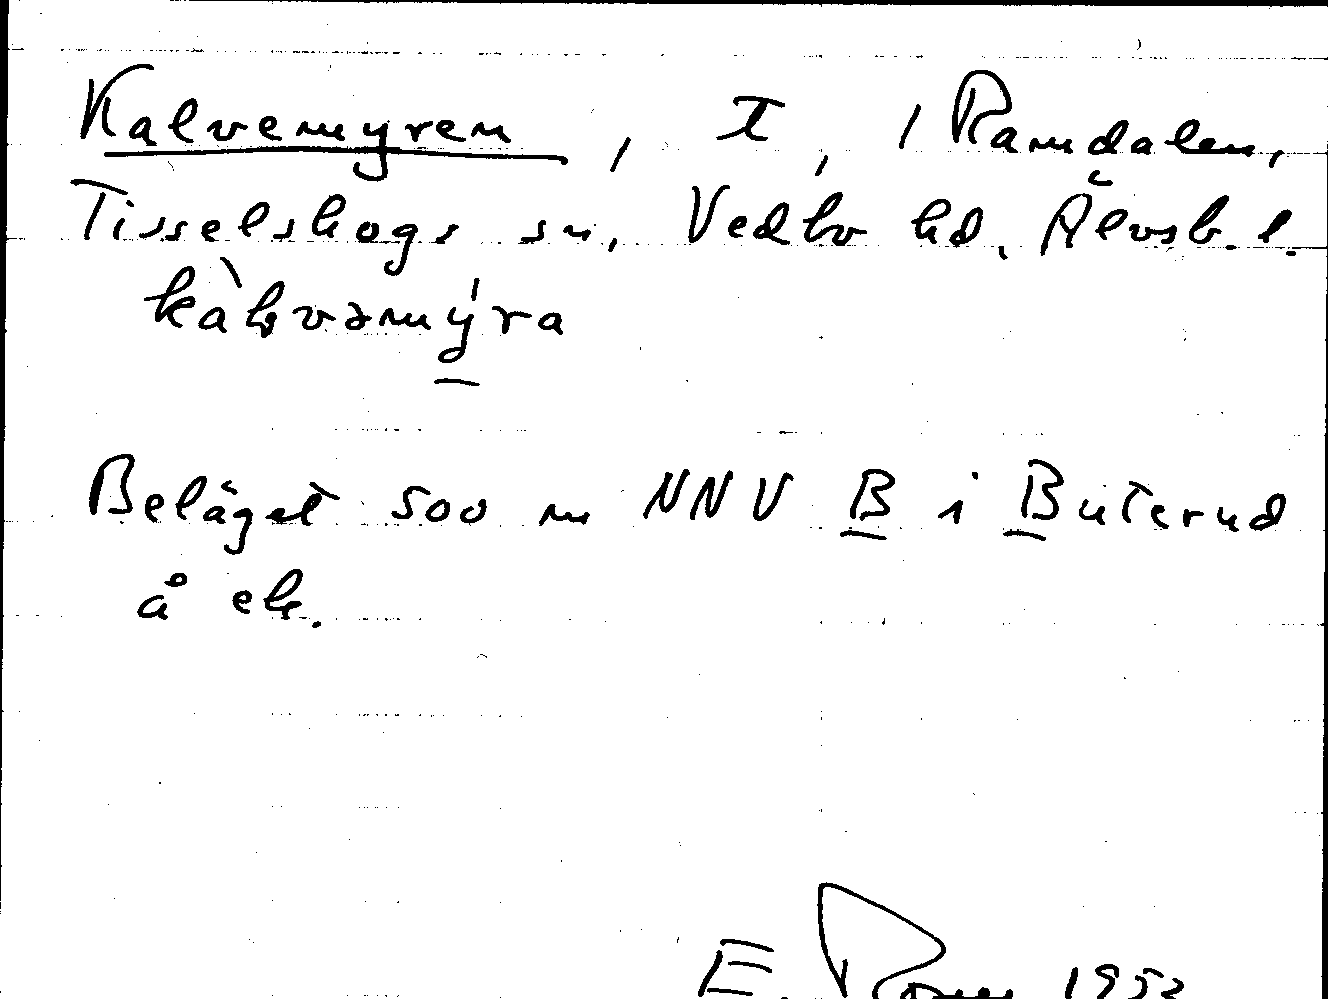 Kalvemyren, I, i Ramdalen,
Tisselskogs sn, Vedbo hd. Älvsb. l.
kàlvəmýra
Beläget 500 m NNV B i Buterud
å ek.
E. 1953